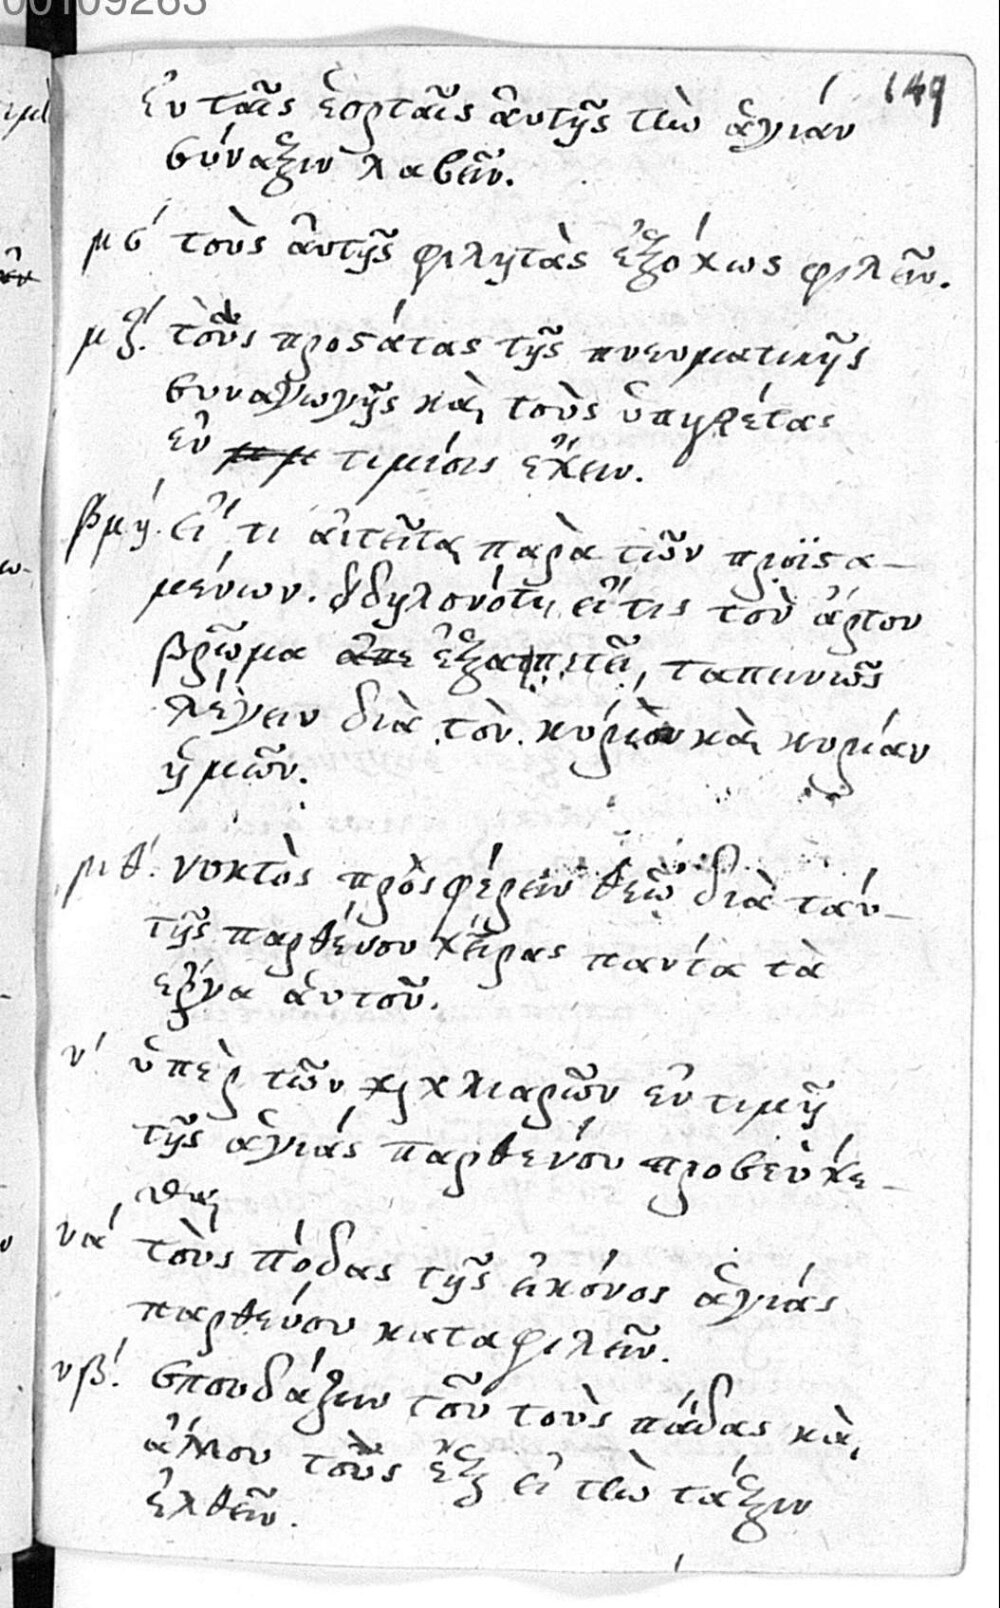 00109263
149
ἐν ταῖς ἑορταῖς ἀυτῆς τὴν ἁγιάν
σύναξιν λαβεῖν.
μϛ΄ τοὺς ἀυτῆς φιλητὰς ἐξόχως φιλεῖν.
μζ΄. τοὺς προστάτας τῆς πνευματικῆς
συναγωγῆς καὶ τοὺς ὑπηρέτας
ἐν τιμέσις ἔχειν.
βμή. εἴ τι ἀιτεῖται παρὰ τῶν προϊστα-
μένων. δδηλονότι, εἴτις τοῦ ἄρτου
βρῶμα ἐξαπιτεῖ, ταπεινῶς
λέγειν διὰ τὸν κύριον καὶ κυρίαν
ἡμῶν.
μθ΄. νυκτὸς πρὸσφέρειν θεῷ διὰ τάυ-
τῆς παρθένου χεῖρας πάντα τὰ
ἔργα ἀυτοῦ.
ν΄ ὑπὲρ τῶν χλιαρῶν ἐν τιμῇ
τῆς ἁγιάς παρθένου προσεύχε-
σθαι
να΄ τοὺς πόδας τῆς εἰκόνος ἁγιάς
παρθένου καταφιλεῖν.
νβ΄. σπουδάζειν τοῦ τοὺς πάιδας καὶ
ἄλλου τοὺς ἔξ εἰ τὴν τάξιν
ἐλθεῖν.